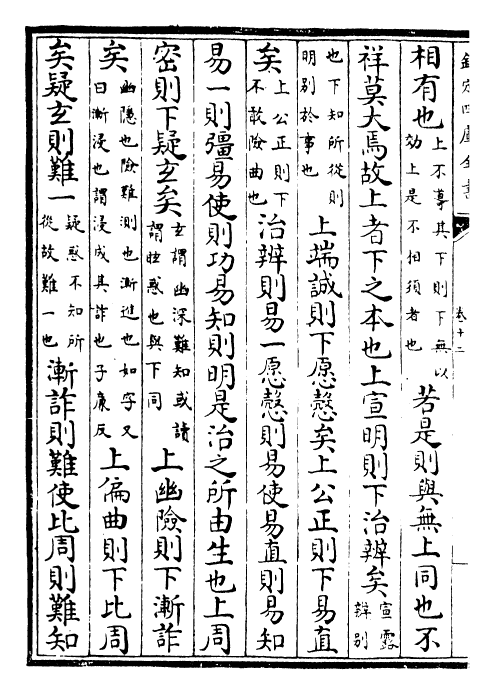 欽定四庫全書
卷十二
相有也上不導其下則下無以効上是不相須者也若是則與無上同也不
祥莫大焉故上者下之本也上宣明則下治辨矣宣露辨别
也下知所從則明别於事也上端誠則下愿慤矣上公正則下易直
矣上公正則下不敢險曲也治辨則易一愿慤則易使易直則易知
易一則彊易使則功易知則明是治之所由生也上周
密則下疑玄矣玄謂幽深難知或讀謂眩惑也與下同上幽險則下漸詐
矣幽隱也險難測也漸進也如字又曰漸浸也謂浸成其詐也子廉反上偏曲則下比周
矣疑玄則難一疑惑不知所從故難一也漸詐則難使比周則難知